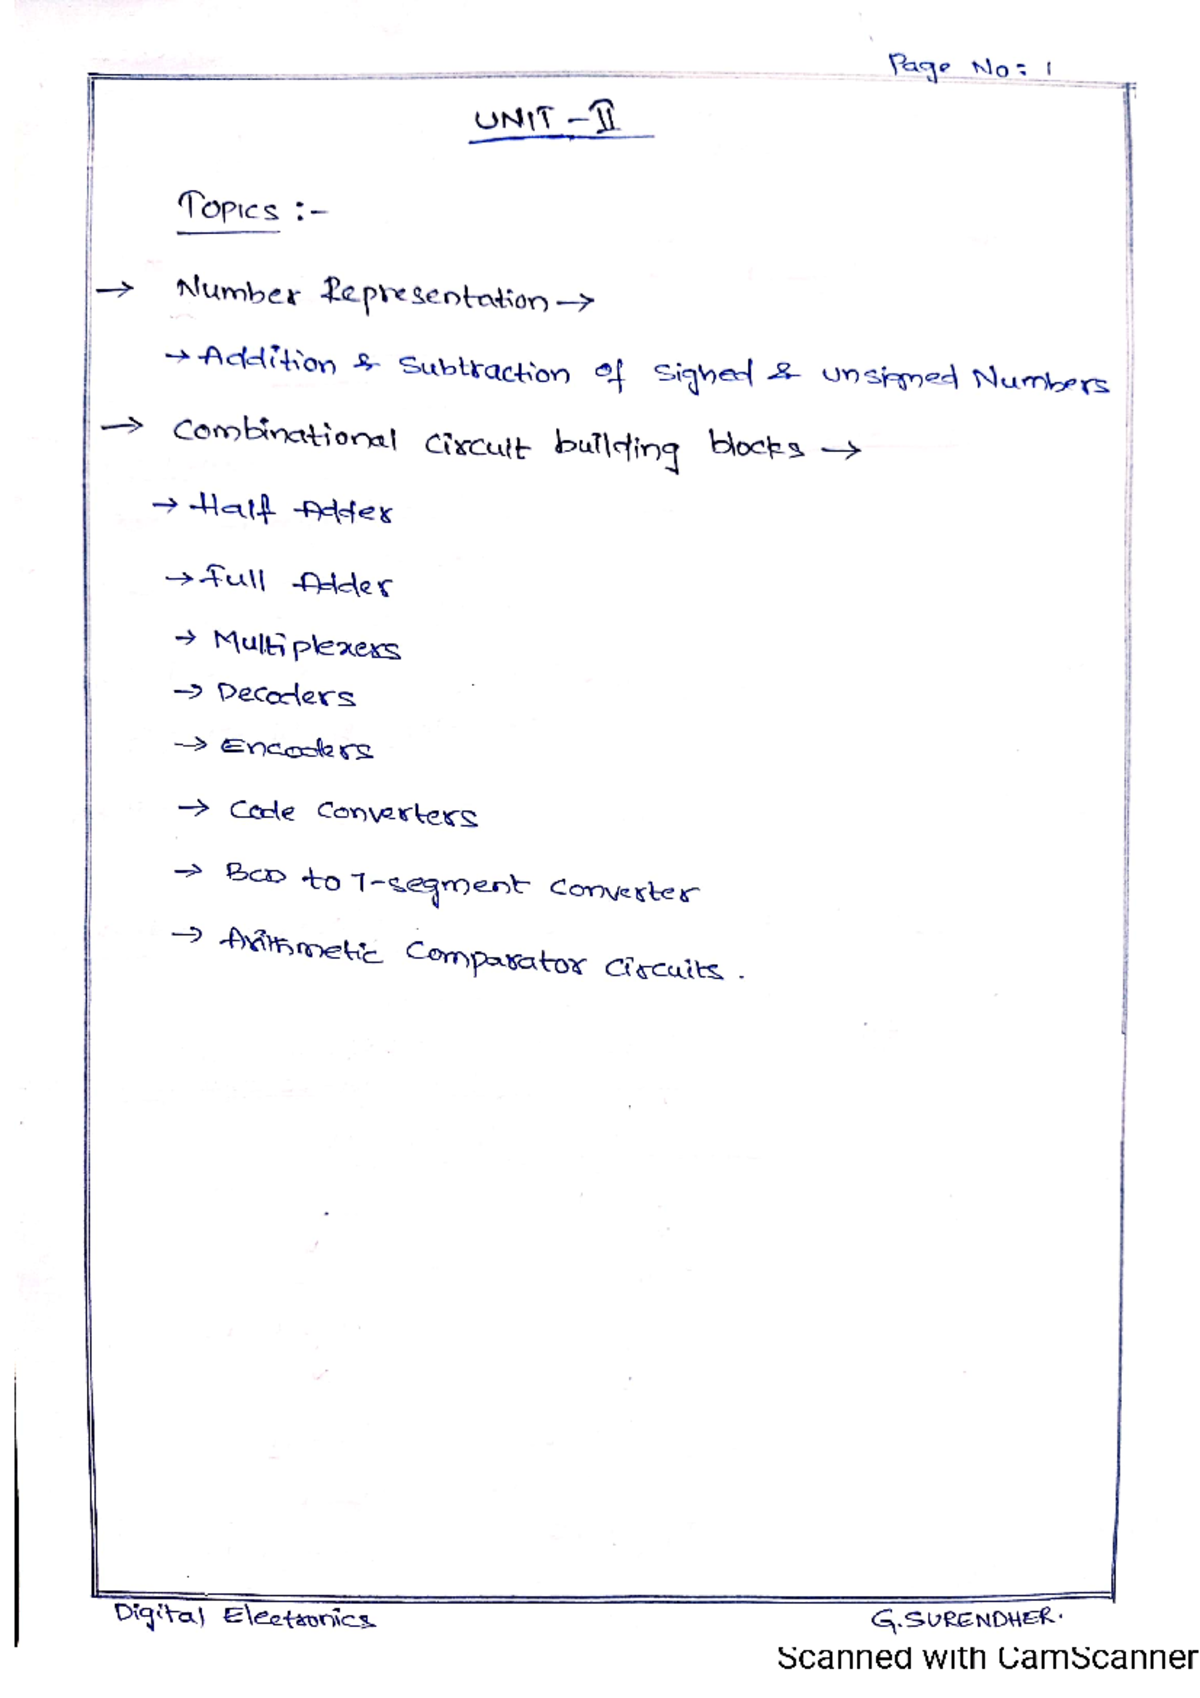 Page No: 1
UNIT - II
Topics :-
→ Number Representation →
→ Addition & Subtraction of signed & unsigned Numbers
→ Combinational Circuit building blocks →
→ Half Adder
→ Full Adder
→ Multiplexers
→ Decoders
→ Encoders
→ Code Converters
→ BCD to 7-segment Converter
→ Arithmetic Comparator Circuits.
Digital Electronics
G.SURENDHER.
Scanned with CamScanner